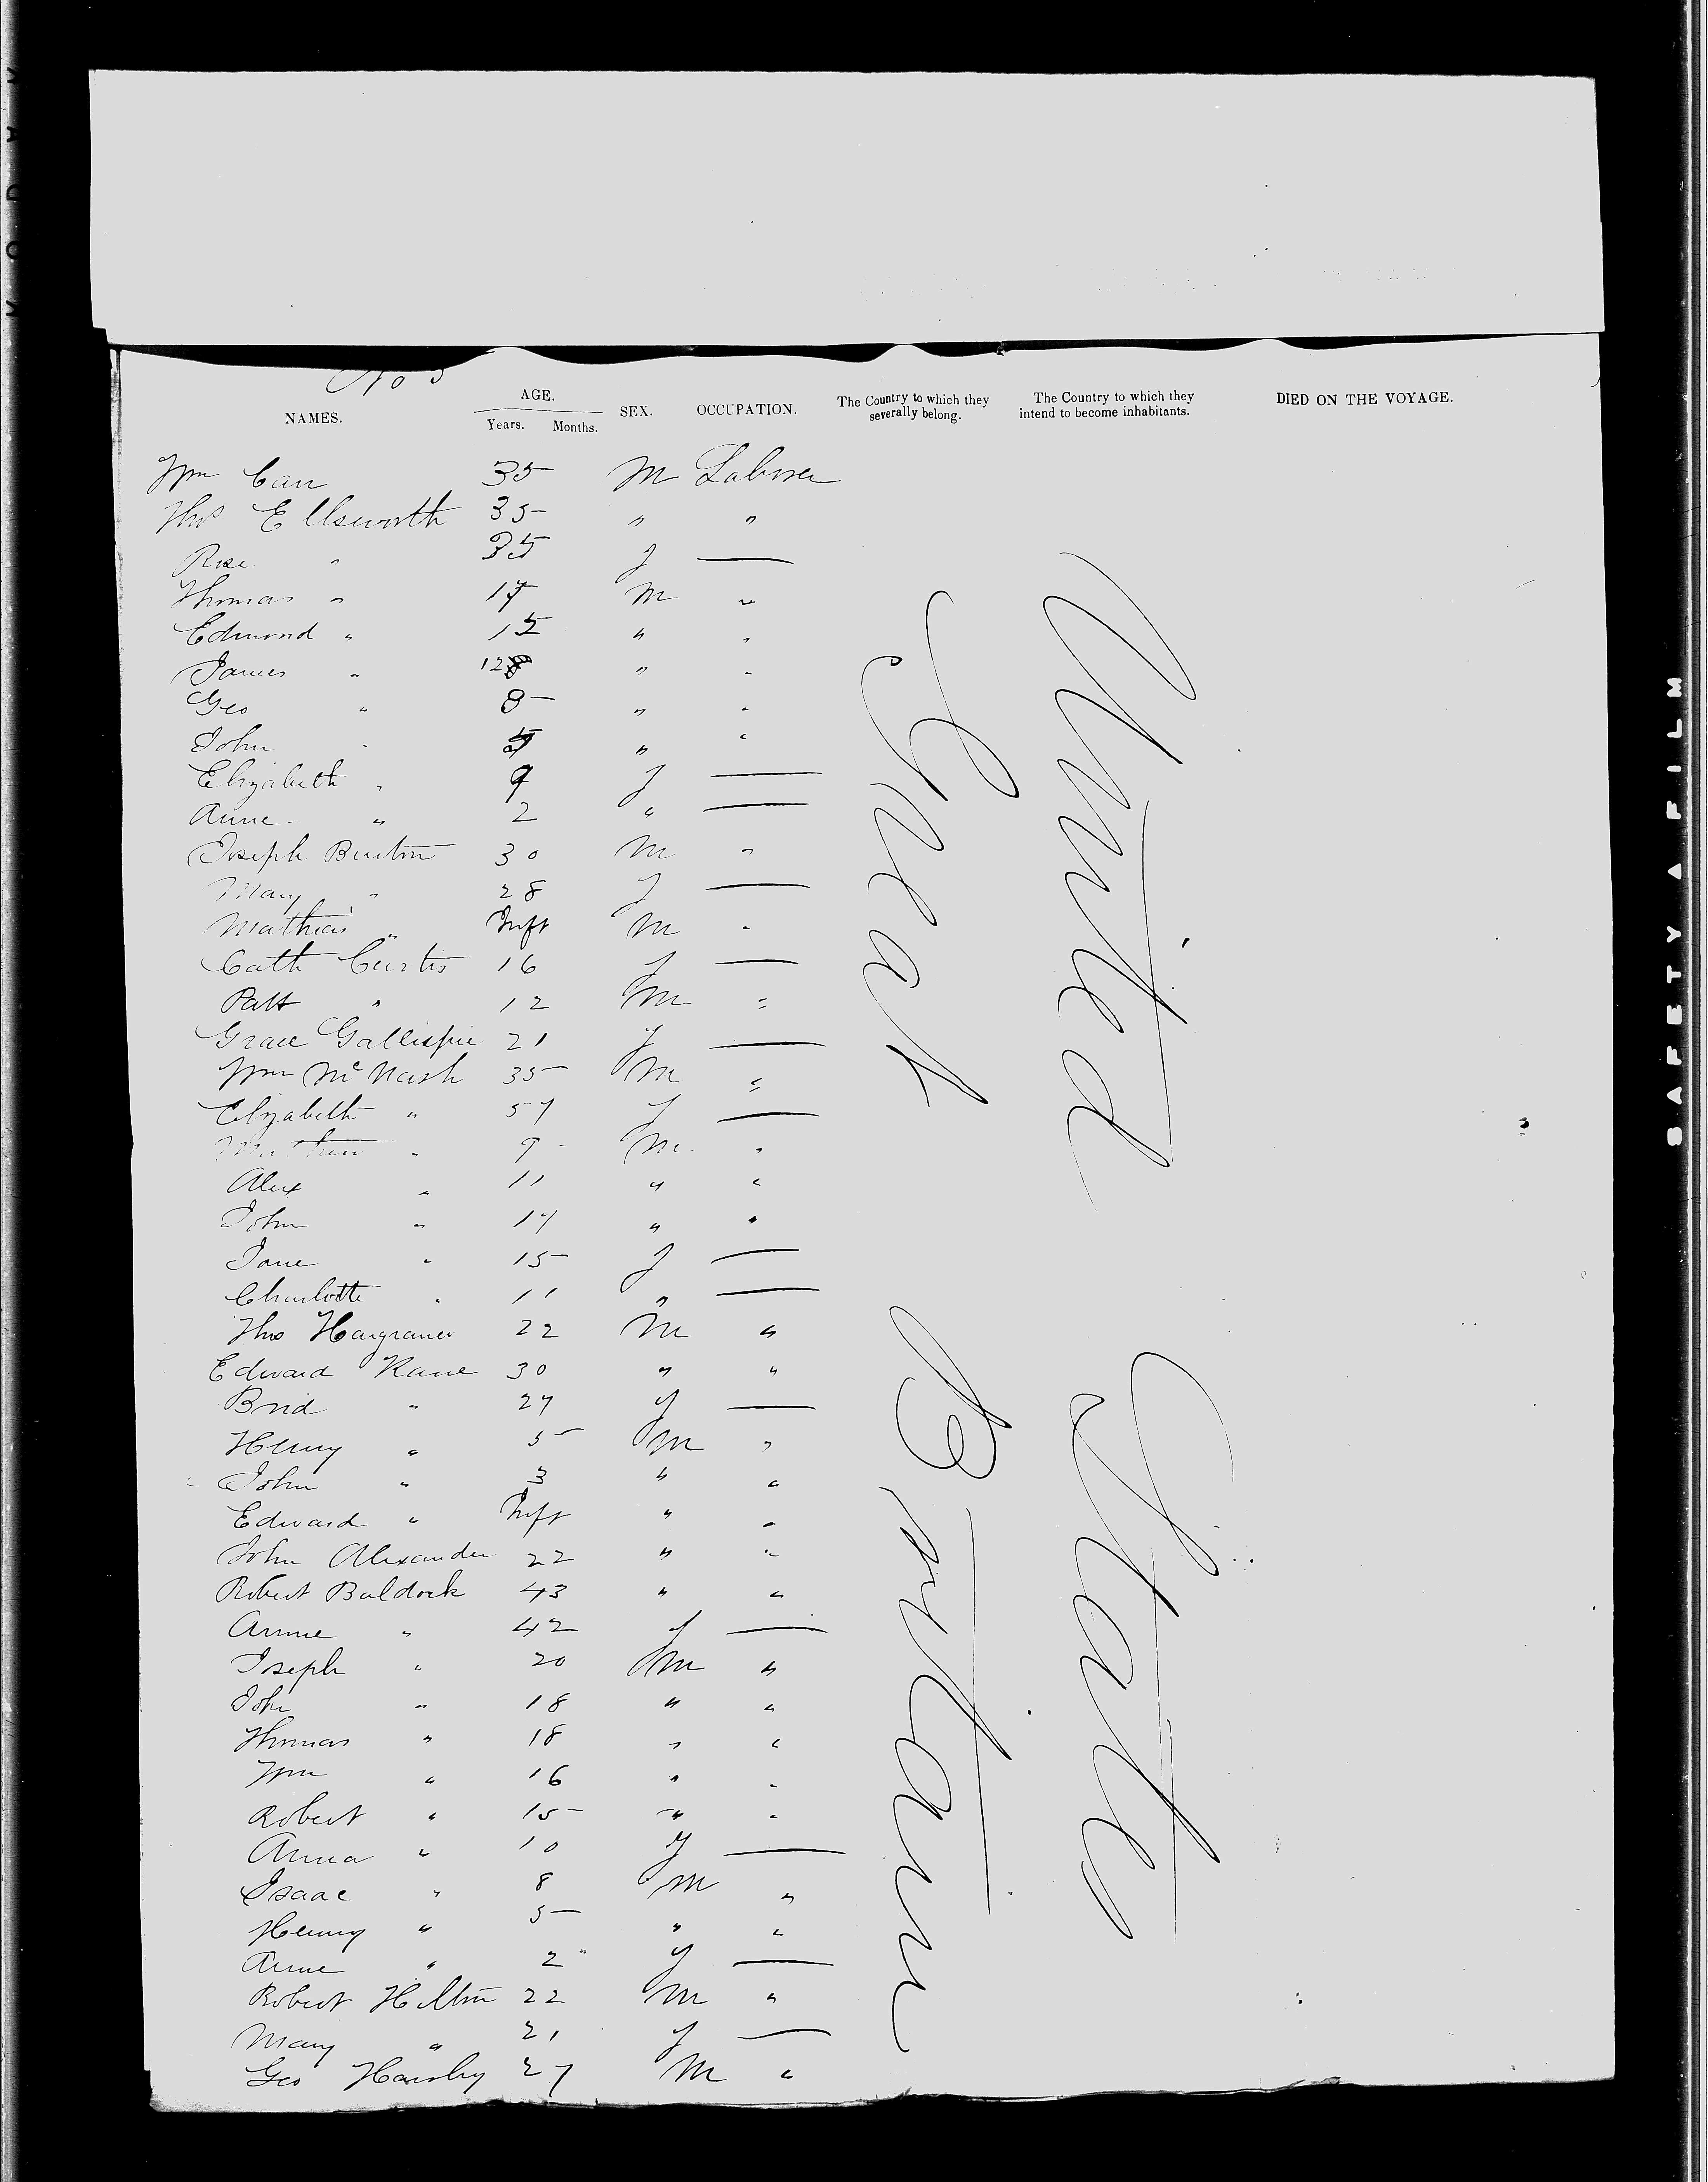 No 5
NAMES. AGE. Years. Months. SEX. OCCUPATION. The Country to which they severally belong. The Country to which they intend to become inhabitants. DIED ON THE VOYAGE.
Wm Carr 35 M Laborer
Thos Ellsworth 35 " "
Rose " 35 f —
Thomas " 17 M "
Edmond " 15 " "
James " 12 " "
Geo " 8 " "
John " " "
Elizabeth " 9 f —
Anne " 2 " —
Joseph Burton 30 M "
Mary " 28 f —
Mathias " Inft M "
Cath Curtis 16 f —
Patt " 12 M "
Grace Gallespie 21 f —
Wm McNash 35 M "
Elizabeth " 37 f —
Mathew " 9 M "
Alex " 11 " "
John " 17 " "
Jane " 15 f —
Charlotte " 11 " —
Thos Hargraves 22 M "
Edward Kane 30 " "
Brid " 27 f —
Henry " 5 M "
John " 3 " "
Edward " Inft " "
John Alexander 22 " "
Robert Baldock 43 " "
Annie " 42 f —
Joseph " 20 M "
John " 18 " "
Thomas " 18 " "
Wm " 16 " "
Robert " 15 " "
Anna " 10 f —
Isaac " 8 M "
Henry " 5 " "
Anne " 2 f —
Robert Hilton 22 M "
Mary " 21 f —
Geo 27 M "
Great Britain
United States
SAFETY FILM